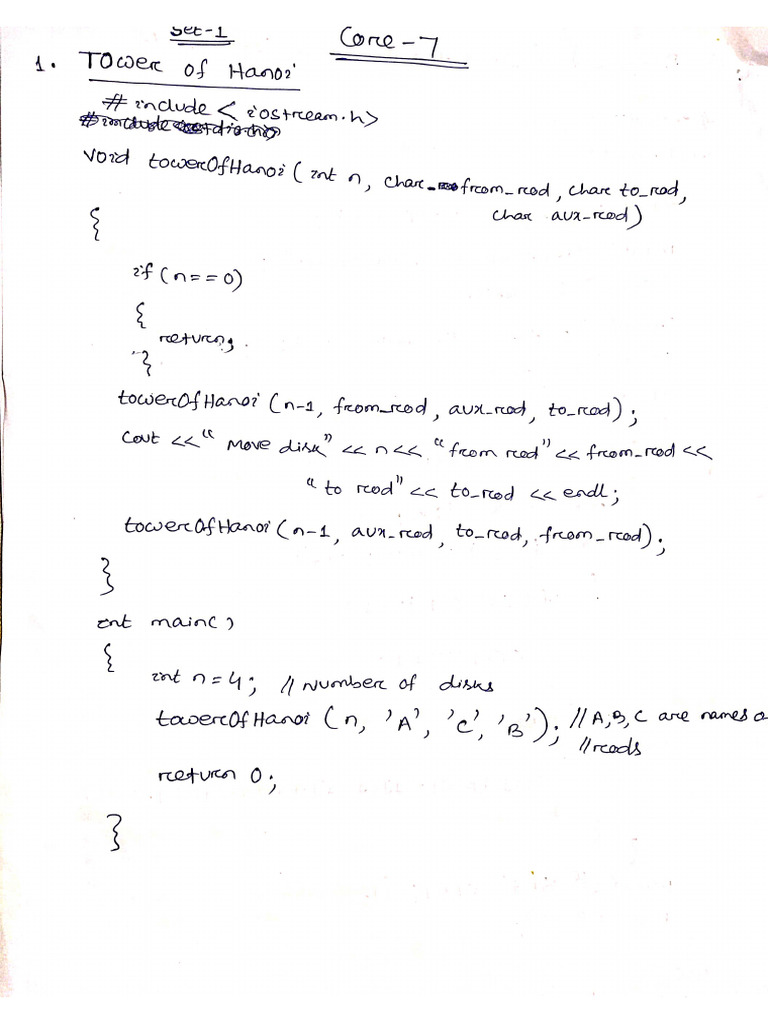 Set-1
Core-7
1. Tower of Hanoi
#include < iostream.h>
void towerOfHanoi (int n, char from_rod, char to_rod,
char aux_rod)
{
if (n==0)
{
return;
}
towerOfHanoi (n-1, from_rod, aux_rod, to_rod);
Cout <<" Move disk" << n<< "from rod" << from_rod <<
" to rod" << to_rod << endl;
towerOfHanoi (n-1, aux_rod, to_rod, from_rod);
}
int main()
{
int n=4; // Number of disks
towerOfHanoi (n, 'A', 'C', 'B'); // A, B, C are names
// rods
return 0;
}